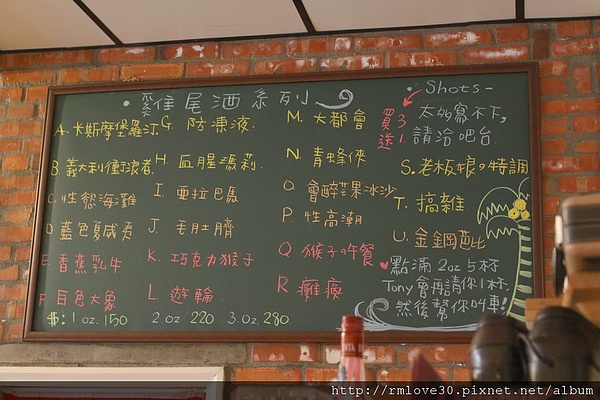 ·雞尾酒系列
A. 卡斯摩堡羅汀
B. 義大利衝浪者
C. 性慾海灘
D. 藍色夏威夷
E 香蕉乳牛
F 白色大象
G. 防凍液
H. 血腥瑪莉
I. 亞拉巴馬
J. 毛肚臍
K. 巧克力猴子
L. 遊輪
M. 大都會
N. 青蜂俠
O. 會醉芒果冰沙
P. 性高潮
Q 猴子の午餐
R. 癱瘓
·Shots-
買3送1
太多寫不下,
請洽吧台.
S. 老板娘の特調
T. 搞雜
U. 金鋼芭比
點滿 2oz 5杯
Tony 會再請你1杯.
然後幫你叫車!
$: 1 oz. 150 2.oz 220 3.oz. 280
http://rmlove30.pixnet.net/album